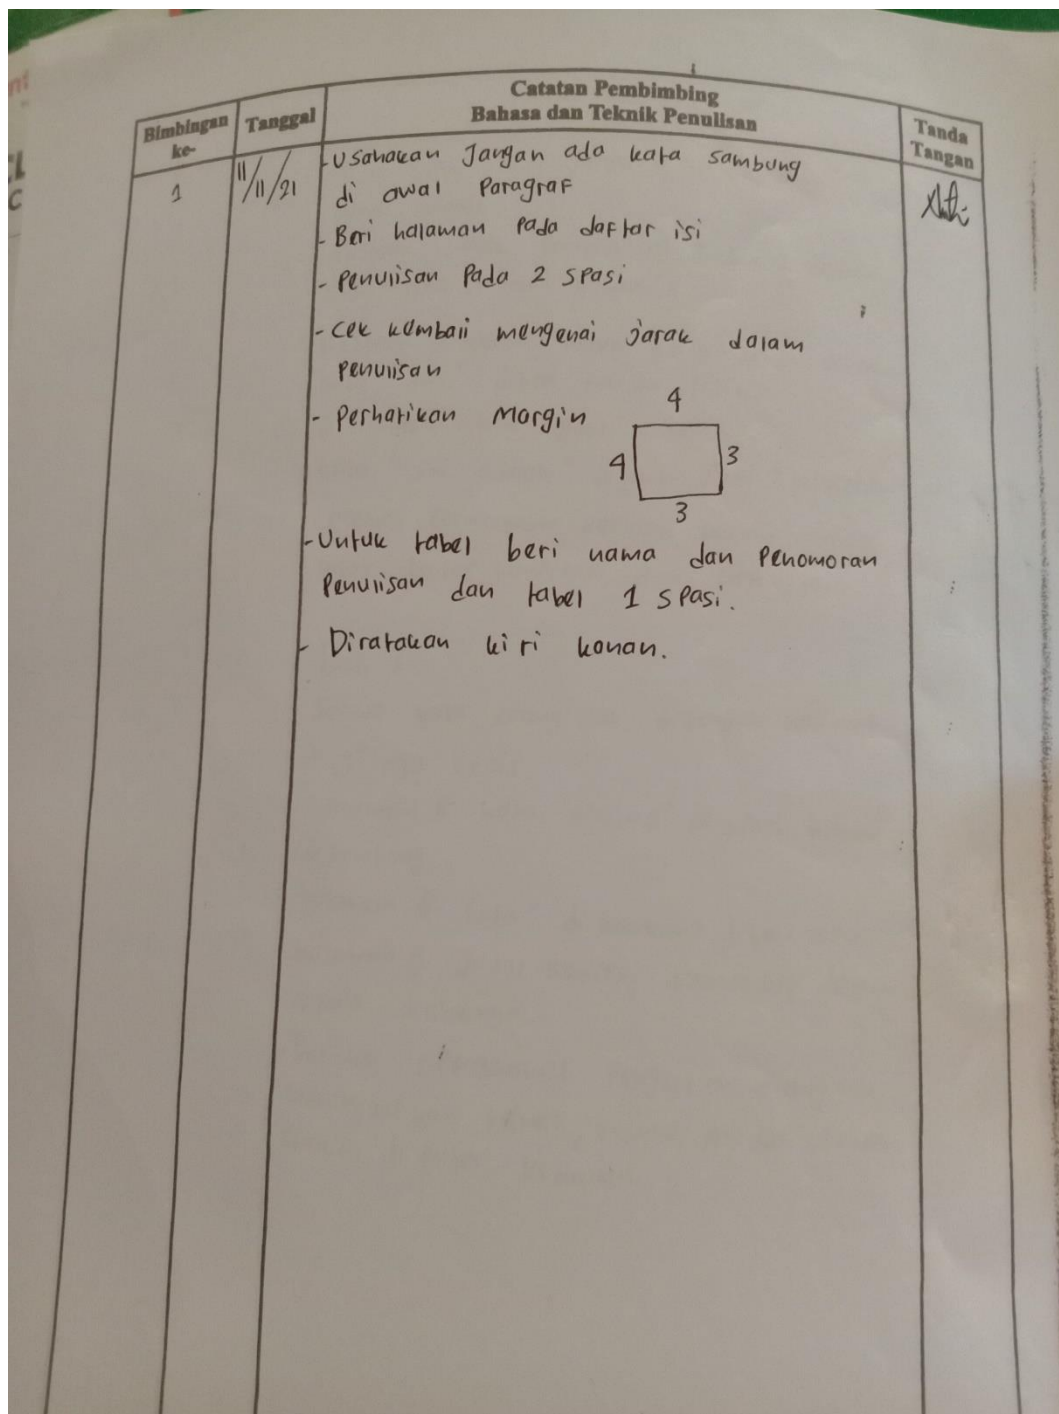 Catatan Pembimbing
Bahasa dan Teknik Penulisan
Bimbingan ke-
Tanggal
Tanda Tangan
1
11/11/21
- Usahakan Jangan ada kata sambung
di awal Paragraf
- Beri halaman Pada daftar isi
- Penulisan Pada 2 spasi
- Cek kembali mengenai jarak dalam
penulisan
- Perhatikan Margin
4
4
3
3
- Untuk tabel beri nama dan Penomoran
Penulisan dan tabel 1 spasi.
- Diratakan kiri kanan.